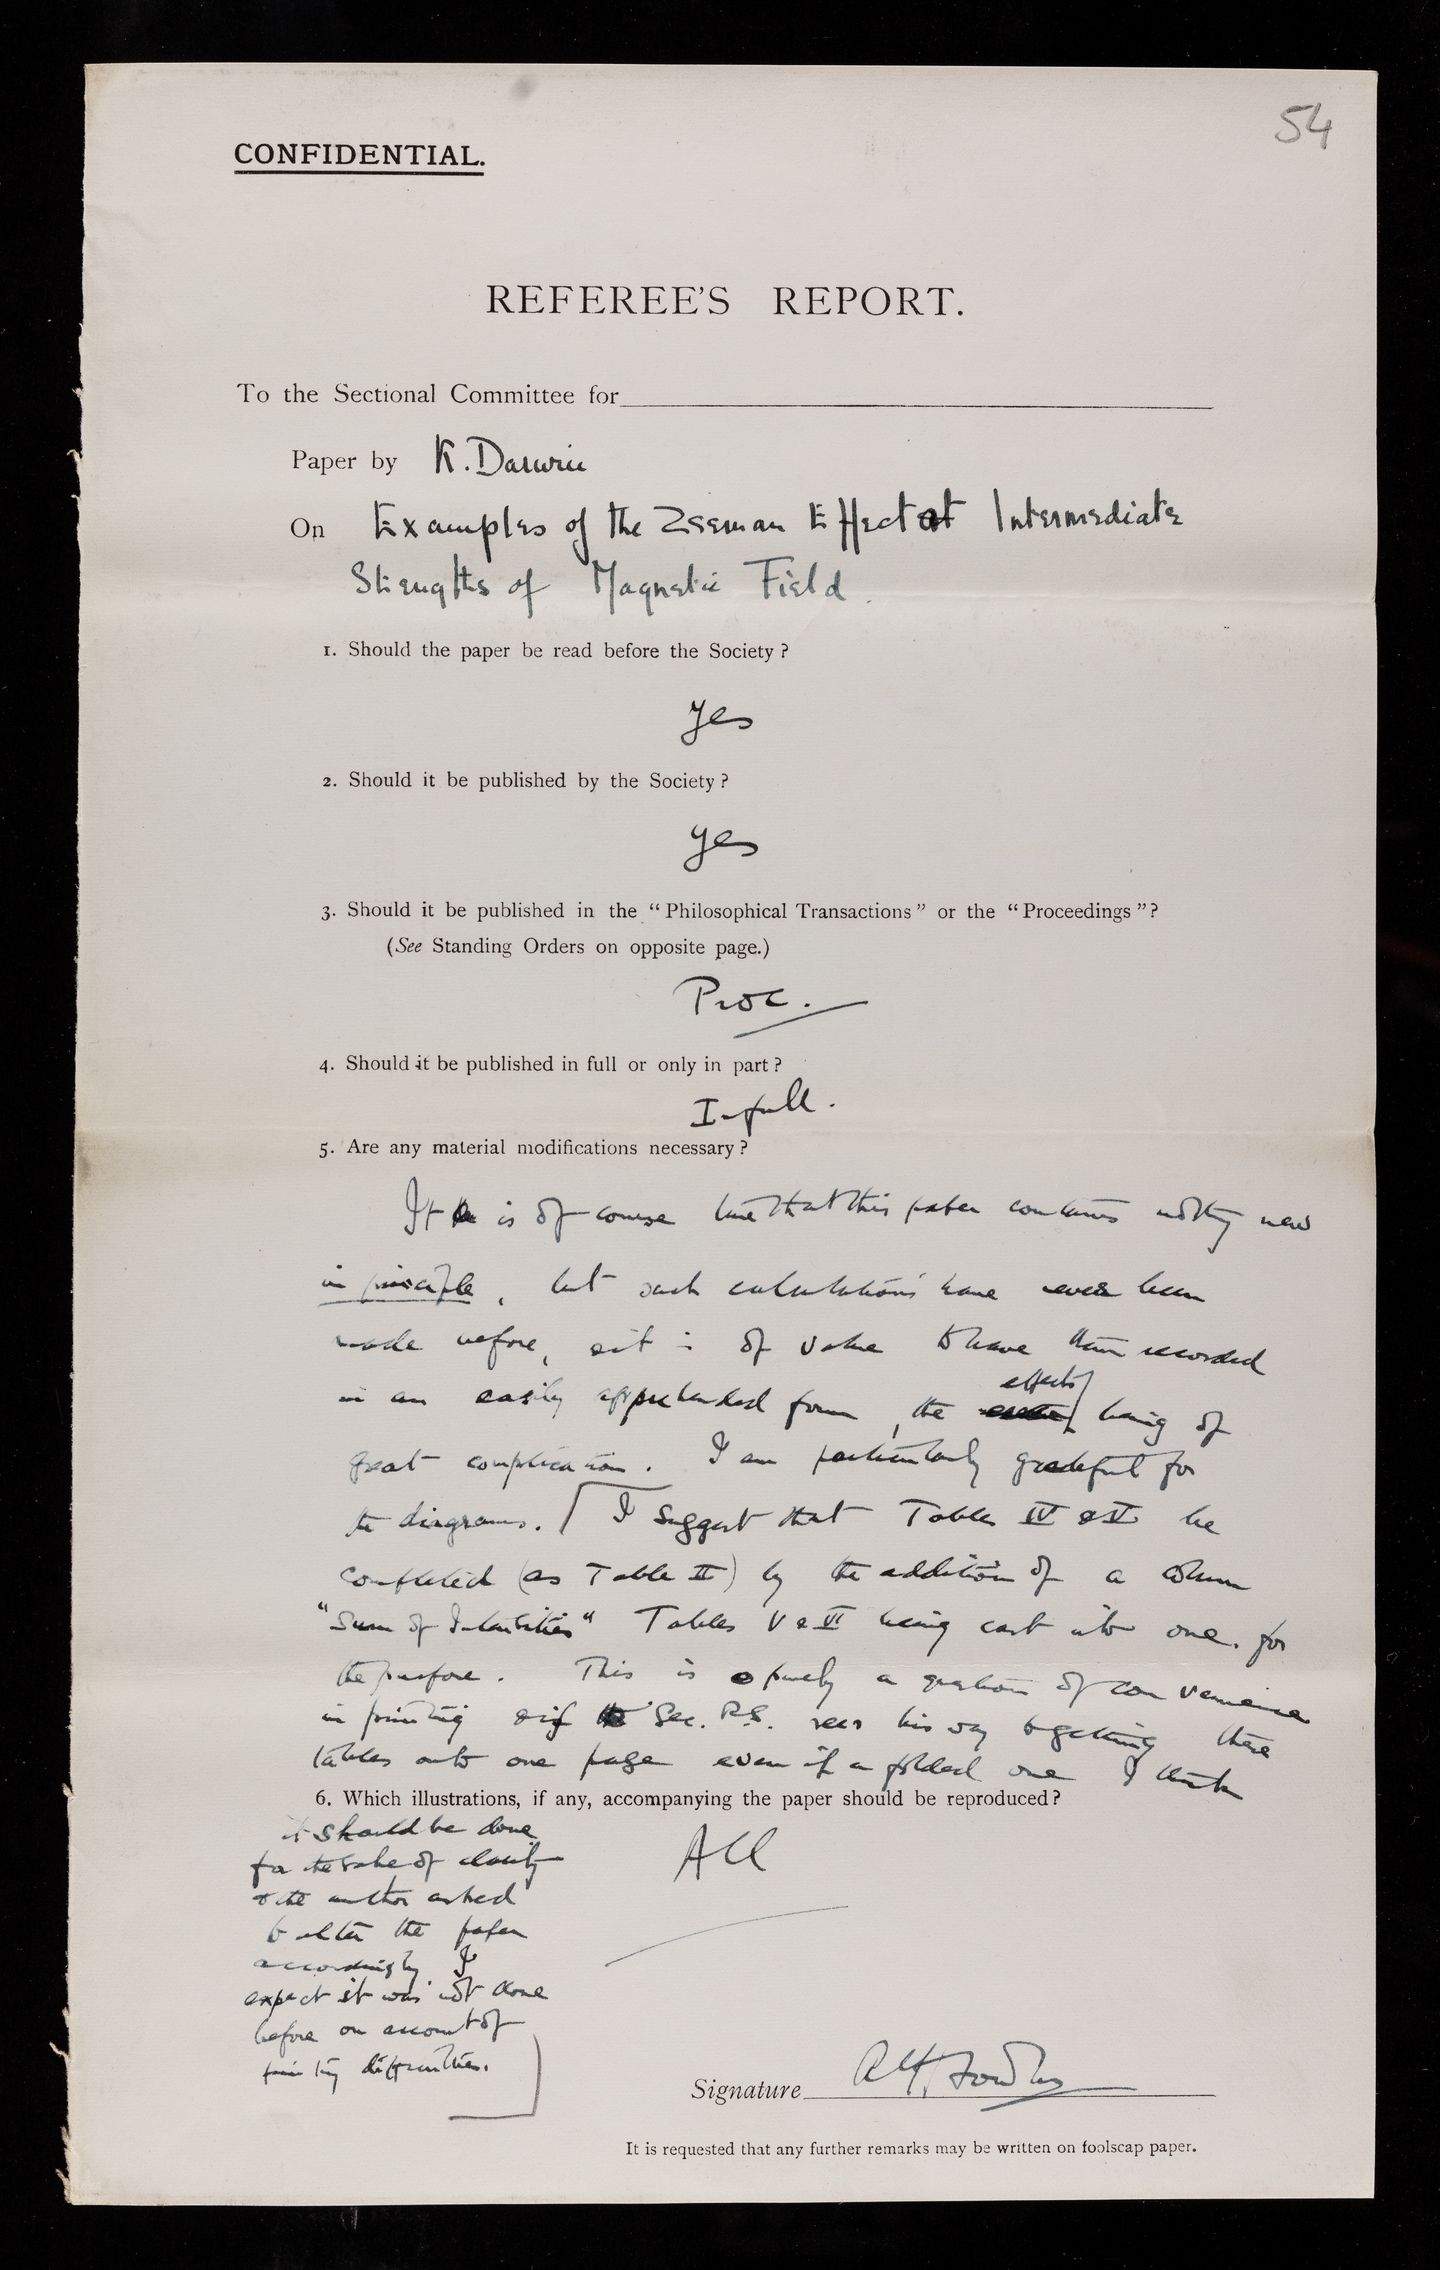 54
CONFIDENTIAL.
REFEREE'S REPORT.
To the Sectional Committee for
Paper by K. Darwin
On Examples of the Zeeman Effect at Intermediate
Strengths of Magnetic Field.
1. Should the paper be read before the Society?
Yes
2. Should it be published by the Society?
Yes
3. Should it be published in the "Philosophical Transactions" or the "Proceedings"?
(See Standing Orders on opposite page.)
Proc.
4. Should it be published in full or only in part?
In full.
5. Are any material modifications necessary?
It is of course true that this paper contains nothing new
in principle, but such calculations have never been
made before, & it is of value to have them recorded
in an easily apprehended form, the effects being of
great complication. I am particularly grateful for
the diagrams. [I suggest that Tables IV & V be
completed (as Table II) by the addition of a column
"Sum of Intensities" Tables V & VI being cast into one for
the purpose. This is purely a question of convenience
in printing & if the Sec. R.S. sees his way to getting these
tables onto one page even if a folded one I think
6. Which illustrations, if any, accompanying the paper should be reproduced?
it should be done
for the sake of clarity
& the author asked
to alter the paper
accordingly. I
expect it was not done
before on account of
printing difficulties.]
All
Signature R H Fowler
It is requested that any further remarks may be written on foolscap paper.